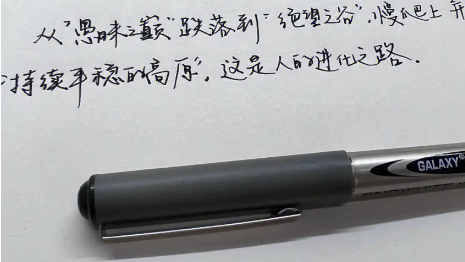 从“愚昧之巅”跌落到“绝望之谷”,慢爬上开
“持续平稳的高原”,这是人的进化之路.
GALAXY®